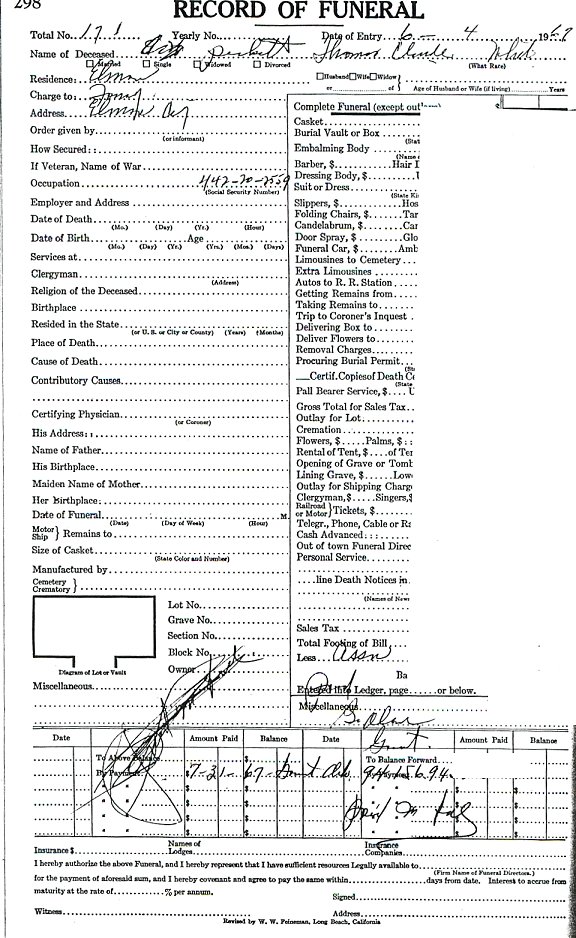 298
RECORD OF FUNERAL
Total No. 171 Yearly No. Date of Entry 6 - 4 1967
Name of Deceased Thomas
Married Single Widowed Divorced (What Race)
Residence: Elmer Husband Wife Widow
or of Age of Husband or Wife (if living) Years
Charge to:
Address Elmer
Order given by
(or informant)
How Secured::
If Veteran, Name of War
Occupation
(Social Security Number)
Employer and Address
Date of Death
(Mo.) (Day) (Yr.) (Hour)
Date of Birth Age
(Mo.) (Day) (Yr.) (Yrs.) (Mos.) (Days)
Services at
Clergyman
(Address)
Religion of the Deceased
Birthplace
Resided in the State
(or U. S. or City or County) (Years) (Months)
Place of Death
Cause of Death
Contributory Causes
Certifying Physician
(or Coroner)
His Address:
Name of Father
His Birthplace
Maiden Name of Mother
Her Birthplace:
Date of Funeral M.
(Date) (Day of Week) (Hour)
Motor Ship } Remains to
Size of Casket
(State Color and Number)
Manufactured by
Cemetery Crematory }
Lot No.
Grave No.
Section No.
Block No.
Owner
Diagram of Lot or Vault
Miscellaneous
Complete Funeral (except out
Casket
Burial Vault or Box
(Stat
Embalming Body
(Name o
Barber, $ Hair D
Dressing Body, $
Suit or Dress
(State Ki
Slippers, $ Hos
Folding Chairs, $ Tar
Candelabrum, $ Car
Door Spray, $ Glo
Funeral Car, $ Amb
Limousines to Cemetery
Extra Limousines
Autos to R. R. Station
Getting Remains from
Taking Remains to
Trip to Coroner's Inquest
Delivering Box to
Deliver Flowers to
Removal Charges
Procuring Burial Permit
(St
Certif. Copies of Death Ce
(State
Pall Bearer Service, $
Gross Total for Sales Tax
Outlay for Lot
Cremation
Flowers, $ Palms, $
Rental of Tent, $ of Ter
Opening of Grave or Tomb
Lining Grave, $ Low
Outlay for Shipping Charge
Clergyman, $ Singers, $
Railroad or Motor } Tickets, $
Telegr., Phone, Cable or Ra
Cash Advanced
Out of town Funeral Direc
Personal Service
line Death Notices in
(Names of New
Sales Tax
Total Footing of Bill
Less Assn
Ba
Entered into Ledger, page or below.
Miscellaneous
Date Amount Paid Balance Date Amount Paid Balance
To Above Balance To Balance Forward
By Payment 7-21-67 By Payment
Insurance $ Names of Lodges Insurance Companies
I hereby authorize the above Funeral, and I hereby represent that I have sufficient resources Legally available to
(Firm Name of Funeral Directors.)
for the payment of aforesaid sum, and I hereby covenant and agree to pay the same within days from date. Interest to accrue from
maturity at the rate of % per annum.
Signed
Witness Address
Revised by W. W. Feineman, Long Beach, California